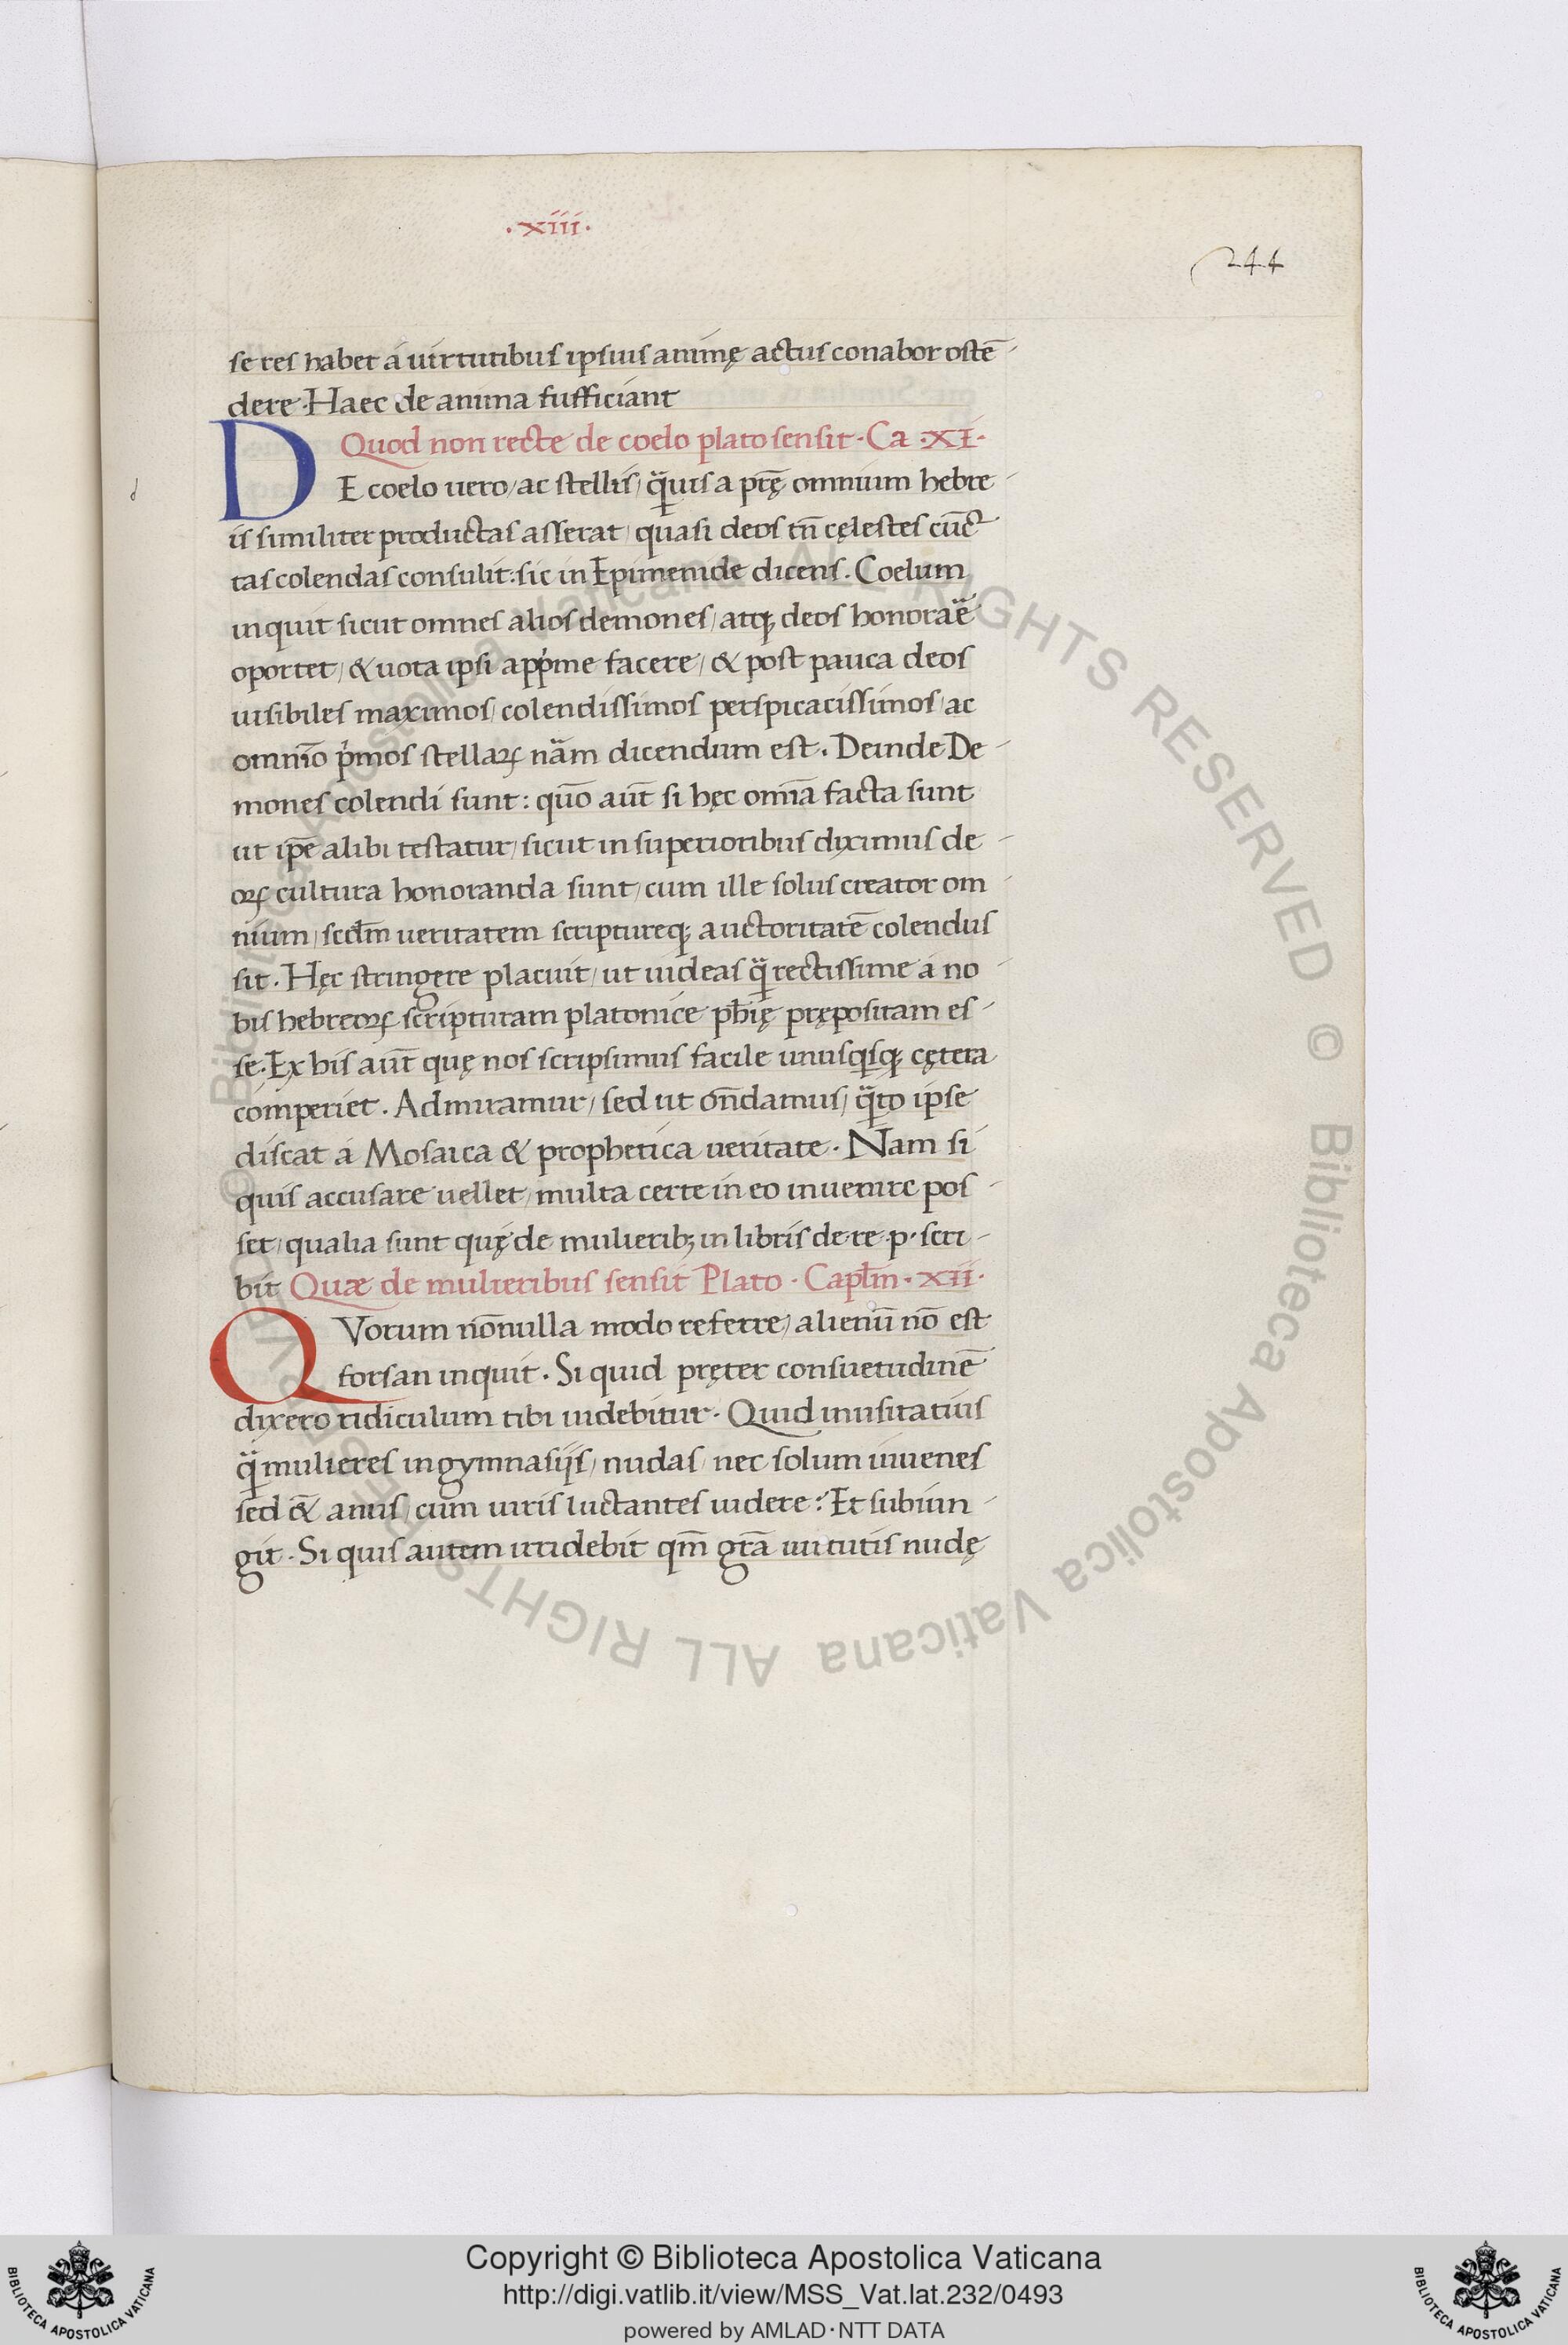 ·xiii·
244
se res habet á uirtutibus ipsius animę actus conabor ostē-
dere. Haec de anima sufficiant
Quod non recte de coelo plato sensit. Ca .XI.
DE coelo uero, ac stellis, q̃uis a prę̄ omnium hebre-
is similiter productas asserat, quasi deos tn̄ cęlestes cūc-
tas colendas consulit: sic in Epimenide dicens. Coelum
inquit sicut omnes alios demones, atq; deos honorar̃e
oportet, & uota ipsi app̓me facere, & post pauca deos
uisibiles maximos, colendissimos perspicacissimos, ac
omnīo p̓mos stellaꝝ nãm dicendum est. Deinde De-
mones colendi sunt: quō aūt si hęc omīa facta sunt
ut ip̄e alibi testatur, sicut in superioribus diximus de-
oꝝ cultura honoranda sunt, cum ille solus creator om-
nium, scd̄m ueritatem scriptureq; auctoritatē colendus
sit. Hęc stringere placuit, ut uideas q̃ rectissime á no-
bis hebreoꝝ scripturam platonice ph̄ię prępositam es-
se. Ex his aūt quę nos scripsimus facile unusq̓sq; cętera
comperiet. Admiramur, sed ut on̄damus, q̃to ipse
discat á Mosaica & prophetica ueritate. Nam si
quis accusare uellet, multa certe in eo inuenire pos-
set, qualia sunt quę de mulierib; in libris de·re·p· scri-
bit Quæ de mulieribus sensit Plato. Capl̄m. xii.
QVorum nōnulla modo referre, alienū nō est
forsan inquit. Si quid pręter consuetudinē
dixero ridiculum tibi uidebitur. Quid inusitatius
q̃ mulieres in gymnasijs, nudas, nec solum iuuenes
sed & anus, cum uiris luctantes uidere? Et subiun-
git. Si quis autem irridebit qm̄ grā uirtutis nudę
Copyright © Biblioteca Apostolica Vaticana
http://digi.vatlib.it/view/MSS_Vat.lat.232/0493
powered by AMLAD·NTT DATA
BIBLIOTECA APOSTOLICA VATICANA
BIBLIOTECA APOSTOLICA VATICANA
© Biblioteca Apostolica Vaticana ALL RIGHTS RESERVED © Biblioteca Apostolica Vaticana ALL RIGHTS RESERVED